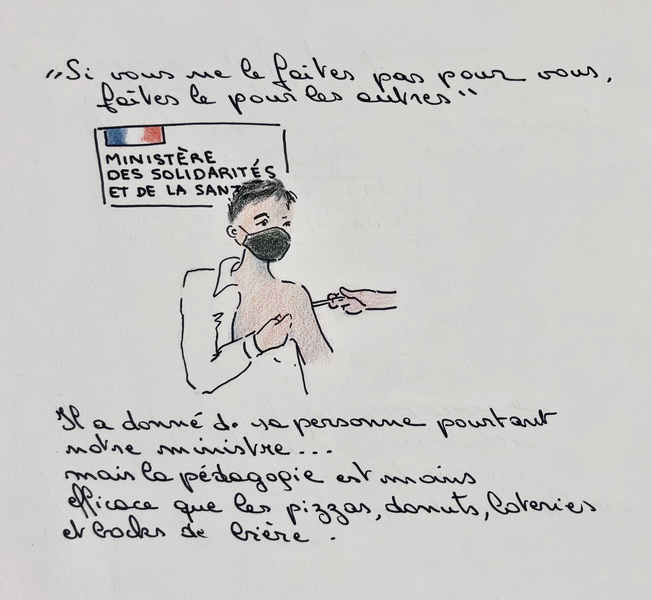 "Si vous ne le faites pas pour vous,
faites le pour les autres"
MINISTÈRE
DES SOLIDARITÉS
ET DE LA SANT
Il a donné de sa personne pourtant
notre ministre...
mais la pédagogie est moins
efficace que les pizzas, donuts, loteries
et bocks de bière.